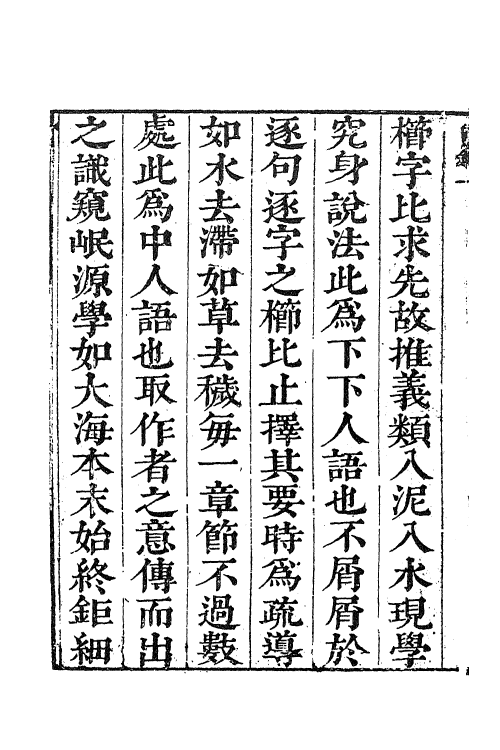 櫛字比求先故推義類入泥入水現學
究身說法此為下下人語也不屑屑於
逐句逐字之櫛比止擇其要時為疏導
如水去滯如草去穢每一章節不過數
處此為中人語也取作者之意傳而出
之識窺岷源學如大海本末始終鉅細